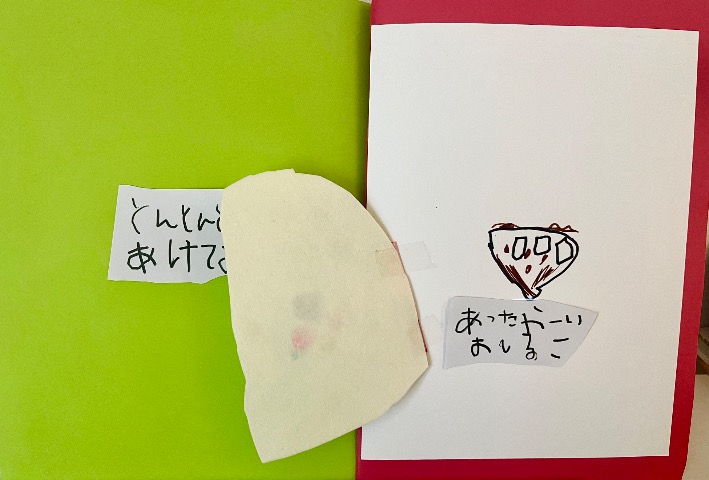 とんとん
あけて
あったかーい
おしるこ